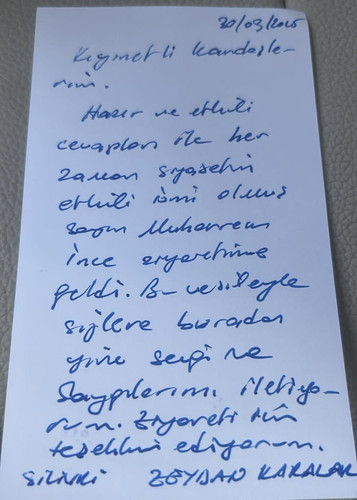 30/03/2026
Kıymetli kardeşle-
rim.
Hazır ve etkili
cevapları ile her
zaman siyasetin
etkili ismi olmuş
sayın Muharrem
İnce ziyaretime
geldi. Bu vesileyle
sizlere buradan
yine sevgi ve
saygılarımı iletiyo-
rum. Ziyareti için
teşekkür ediyorum.
Silivri ZEYDAN KARALAR